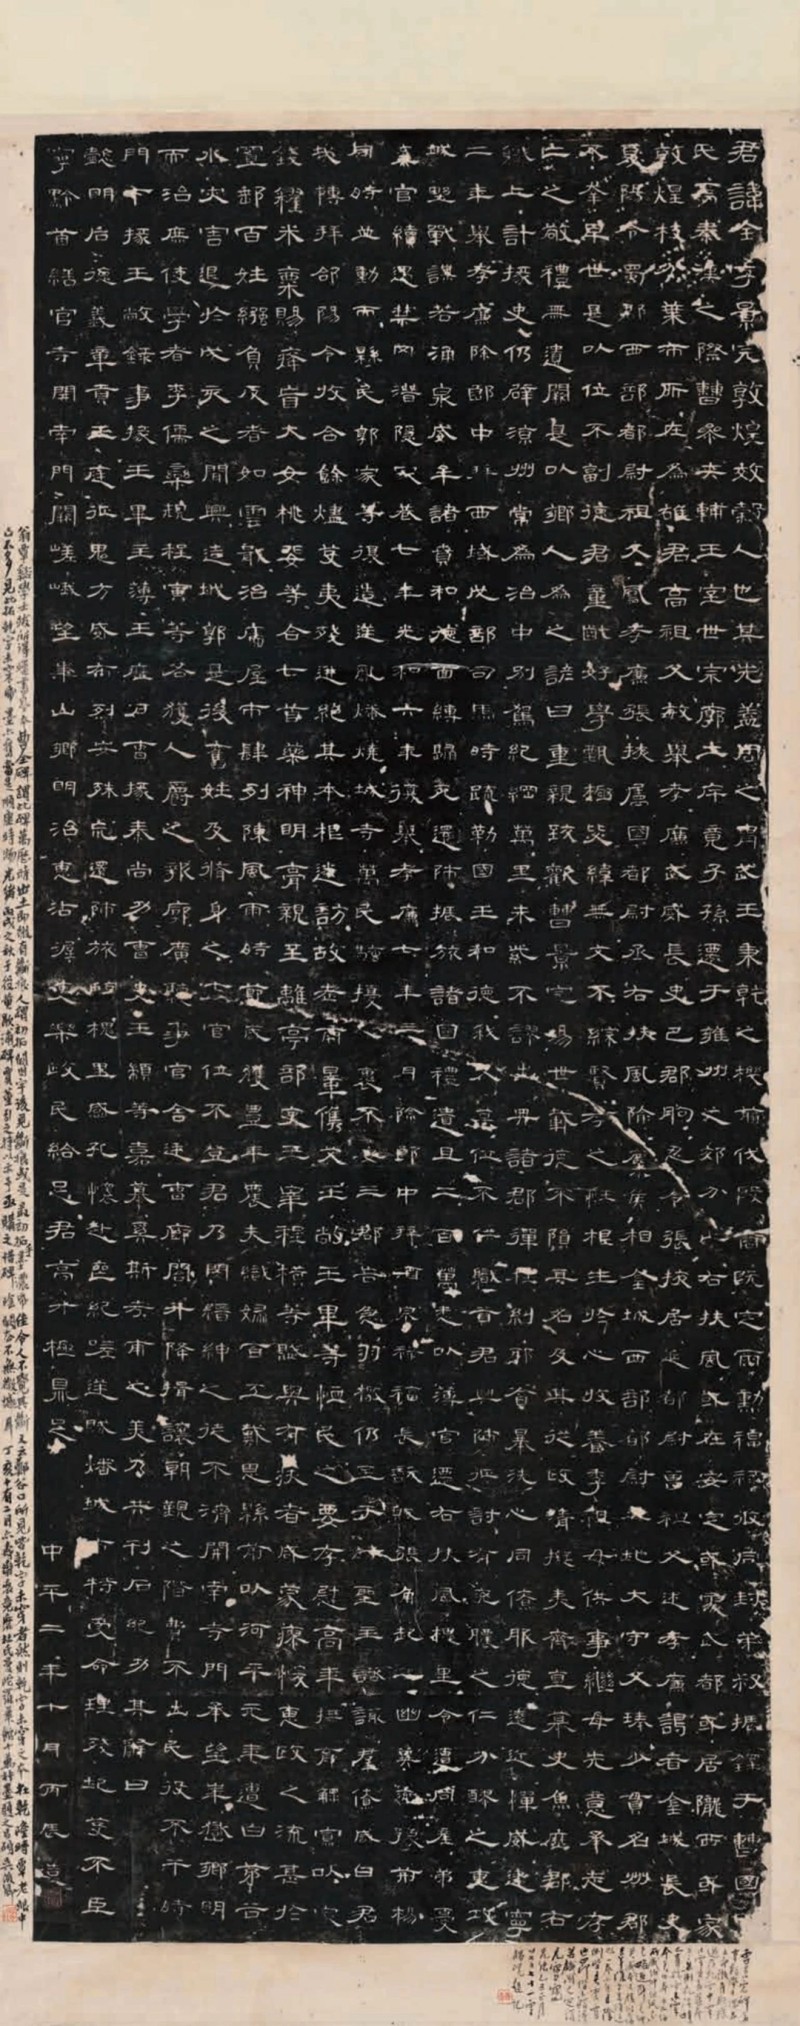 君諱全字景完敦煌效穀人也其先蓋周之胄武王秉乾之機翦伐殷商既定爾勳福祿攸同封弟叔振鐸于曹國
氏焉秦漢之際曹參夾輔王室世宗廓土斥竟子孫遷于雍州之郊分止右扶風或在安定或處武都或居隴西或家
敦煌枝分葉布所在為雄君高祖父敏舉孝廉武威長史巴郡朐忍令張掖居延都尉曾祖父述孝廉謁者金城長史
夏陽令蜀郡西部都尉祖父鳳孝廉張掖屬國都尉丞右扶風隃麋侯相金城西部都尉北地大守父琫少貫名州郡
不幸早世是以位不副德君童齔好學甄極毖緯無文不綜賢孝之性根生於心收養季祖母供事繼母先意承志存
亡之敬禮無遺闕是以鄉人為之諺曰重親致歡曹景完易世載德不隕其名及其從政清擬夷齊直慕史魚歷郡右
職上計掾史仍辟涼州常為治中別駕紀綱萬里朱紫不謬出典諸郡彈枉糾邪貪暴洗心同僚服德遠近憚威建寧
二年舉孝廉除郎中拜西域戊部司馬時疏勒國王和德弒父篡位不供職貢君興師征討有吮膿之仁分醪之惠攻
城野戰謀若涌泉威牟諸賁和德面縛歸死還師振旅諸國禮遺且二百萬悉以薄官遷右扶風槐里令遭同產弟憂
棄官續遇禁冈潛隱家巷七年光和六年復舉孝廉七年三月除郎中拜酒泉祿福長訞賊張角起兵幽冀兗豫荊楊
同時並動而縣民郭家等復造逆亂燔燒城寺萬民騷擾人褱不安三郡告急羽檄仍至于時聖主諮諏群僚咸曰君
哉轉拜郃陽令收合餘燼芟夷殘迸絕其本根遂訪故老商量儁艾王敞王畢等恤民之要存慰高年撫育鰥寡以家
錢糴米粟賜癃盲大女桃婓等合七首藥神明膏親至離亭部吏王宰程橫等賦與有疾者咸蒙瘳悛惠政之流甚於
置郵百姓繈負反者如雲戢治廧屋市肆列陳風雨時節歲獲豐年農夫織婦百工戴恩縣前以河平元年遭白茅谷
水災害退於戌亥之間興造城郭是後舊姓及脩身之士官位不登君乃閔縉紳之徒不濟開南寺門承望華嶽鄉明
而治庶使學者李儒欒規程寅等各獲人爵之報廓廣聽事官舍廷曹廊閤升降揖讓朝覲之階費不出民役不干時
門下掾王敞錄事掾王畢主簿王歷戶曹掾秦尚功曹史王顓等嘉慕奚斯考甫之美乃共刊石紀功其辭曰
懿明后德義章貢王庭征鬼方威布烈安殊巟還師旅臨槐里感孔懷赴喪紀嗟逆賊燔城市特受命理殘圮芟不臣
寧黔首繕官寺開南門闕嵯峨望華山鄉明治惠沾渥吏樂政民給足君高升極鼎足
中平二年十月丙辰造